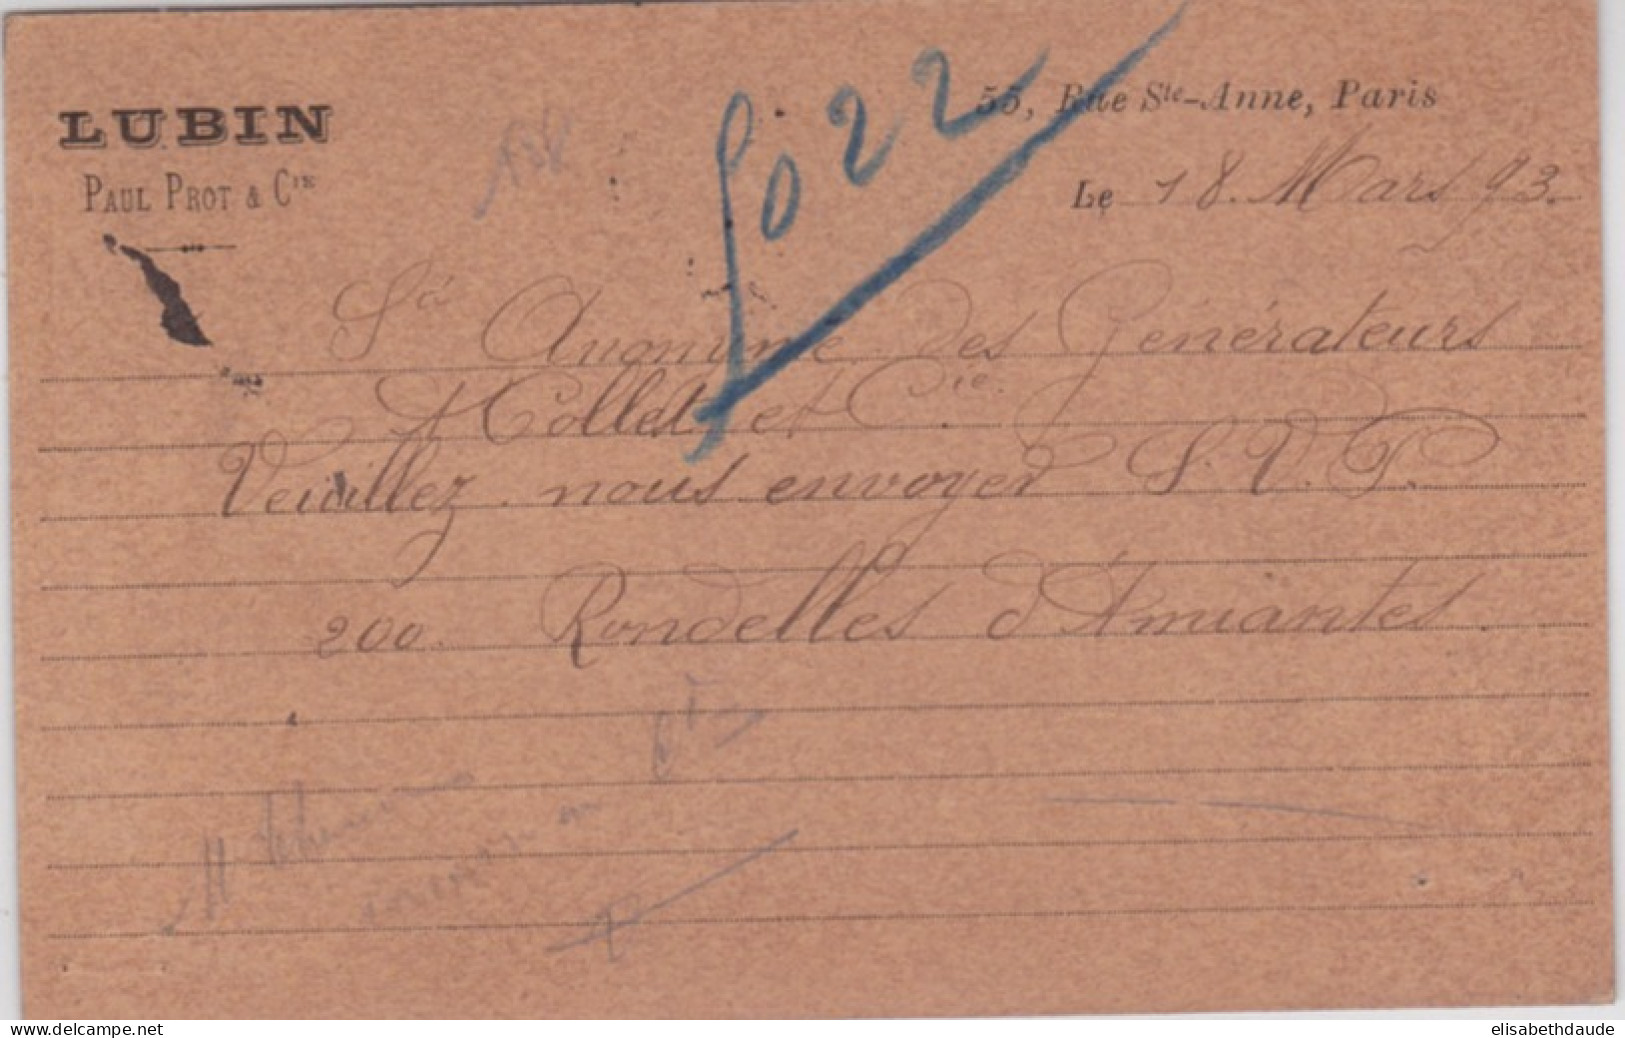 LUBIN
PAUL PROT & CIE
55, Rue Ste-Anne, Paris
Le 18. Mars 93.
5022
Sé Anonyme des Générateurs
Collet et Cie.
Veuillez nous envoyer S. V. P.
200 Rondelles d'Amiantes.
delcampe.net
elisabethdaude